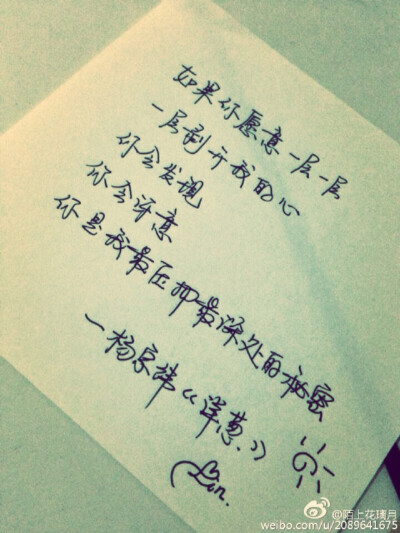 如果你愿意一层一层
一层剥开我的心
你会发现
你会讶意
你是我最压抑最深处的秘密
—杨宗纬《洋葱》
@陌上花璃月
weibo.com/u/2089641675